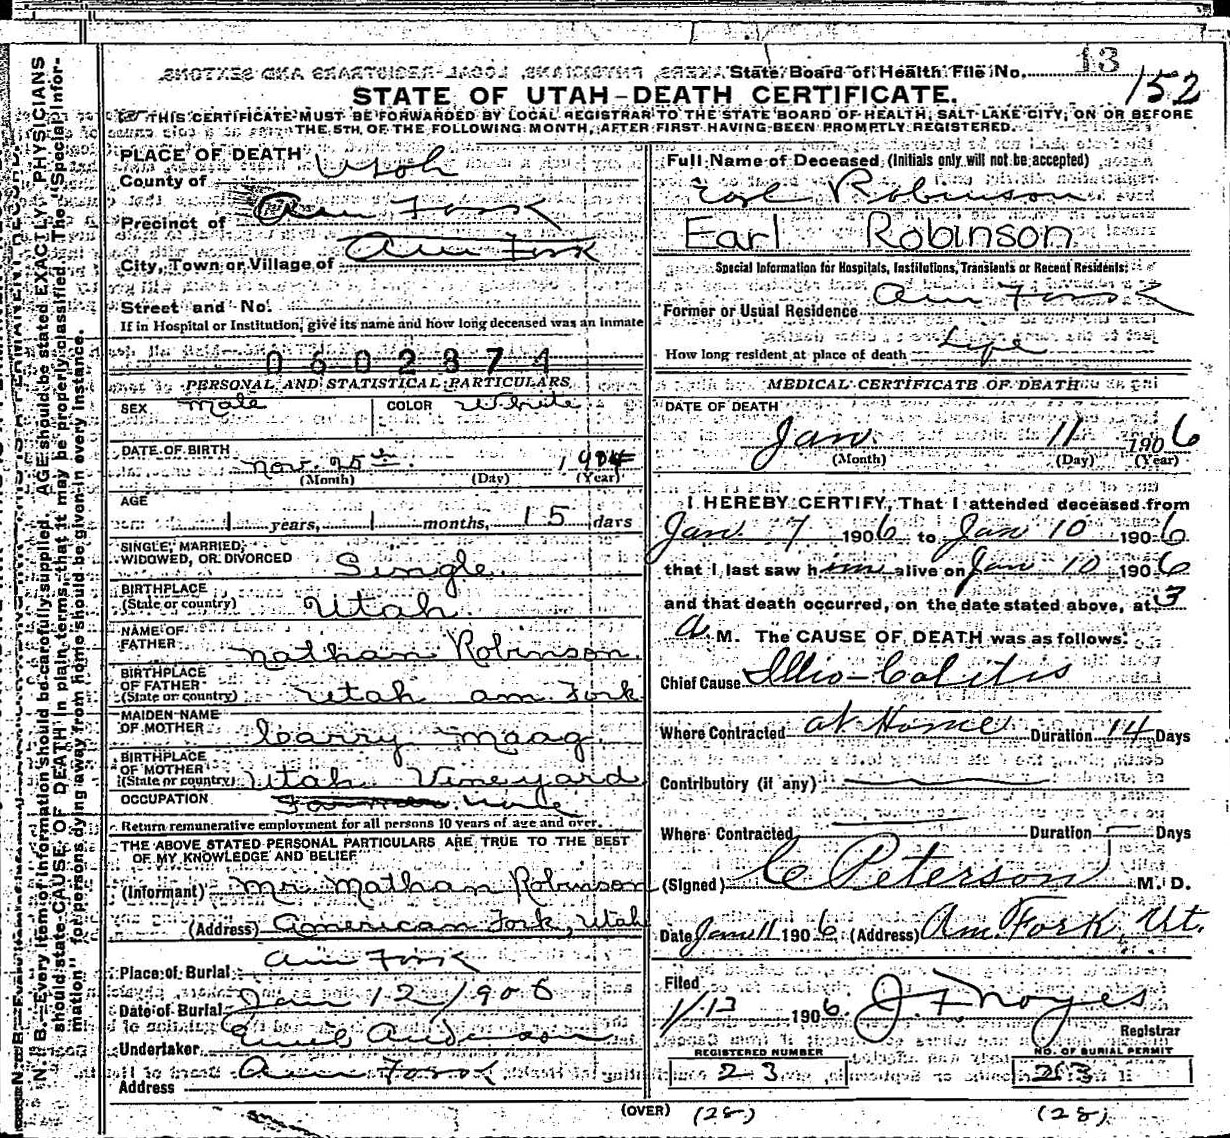 State Board of Health File No. 13
152
STATE OF UTAH—DEATH CERTIFICATE.
THIS CERTIFICATE MUST BE FORWARDED BY LOCAL REGISTRAR TO THE STATE BOARD OF HEALTH, SALT LAKE CITY, ON OR BEFORE
THE 5TH OF THE FOLLOWING MONTH, AFTER FIRST HAVING BEEN PROMPTLY REGISTERED.
PLACE OF DEATH
County of Utah
Precinct of Am Fork
City, Town or Village of Am Fork
Street and No.
If in Hospital or Institution, give its name and how long deceased was an inmate
0602874
PERSONAL AND STATISTICAL PARTICULARS
SEX Male COLOR White
DATE OF BIRTH
Nov. 25th. 1904
(Month) (Day) (Year)
AGE
1 years, 1 months, 15 days
SINGLE, MARRIED,
WIDOWED, OR DIVORCED Single
BIRTHPLACE
(State or country) Utah
NAME OF
FATHER Nathan Robinson
BIRTHPLACE
OF FATHER
(State or country) Utah Am Fork
MAIDEN NAME
OF MOTHER Carry Maag
BIRTHPLACE
OF MOTHER
(State or country) Utah Vineyard
OCCUPATION
Return remunerative employment for all persons 10 years of age and over.
THE ABOVE STATED PERSONAL PARTICULARS ARE TRUE TO THE BEST
OF MY KNOWLEDGE AND BELIEF
(Informant) Mr. Nathan Robinson
(Address) American Fork, Utah
Place of Burial Am Fork
Date of Burial Jan 12 1906
Undertaker Emil Anderson
Address Am Fork
Full Name of Deceased (Initials only will not be accepted)
Earl Robinson
Earl Robinson
Special Information for Hospitals, Institutions, Transients or Recent Residents:
Former or Usual Residence Am Fork
How long resident at place of death Life
MEDICAL CERTIFICATE OF DEATH
DATE OF DEATH
Jan. 11 1906
(Month) (Day) (Year)
I HEREBY CERTIFY, That I attended deceased from
Jan. 7 1906 to Jan 10 1906
that I last saw him alive on Jan 10 1906
and that death occurred, on the date stated above, at 3
A. M. The CAUSE OF DEATH was as follows:
Chief Cause Illio-Colitis
Where Contracted at Home Duration 14 Days
Contributory (if any)
Where Contracted Duration Days
(Signed) C Peterson M. D.
Date Jan 11 1906. (Address) Am. Fork, Ut.
Filed
1/13 1906. J. F. Noyes
Registrar
REGISTERED NUMBER
23
NO. OF BURIAL PERMIT
263
(OVER) (28) (28)
N. B.—Every item of information should be carefully supplied. AGE should be stated EXACTLY. PHYSICIANS
should state CAUSE OF DEATH in plain terms, that it may be properly classified. The "Special Infor-
mation" for persons dying away from home should be given in every instance.